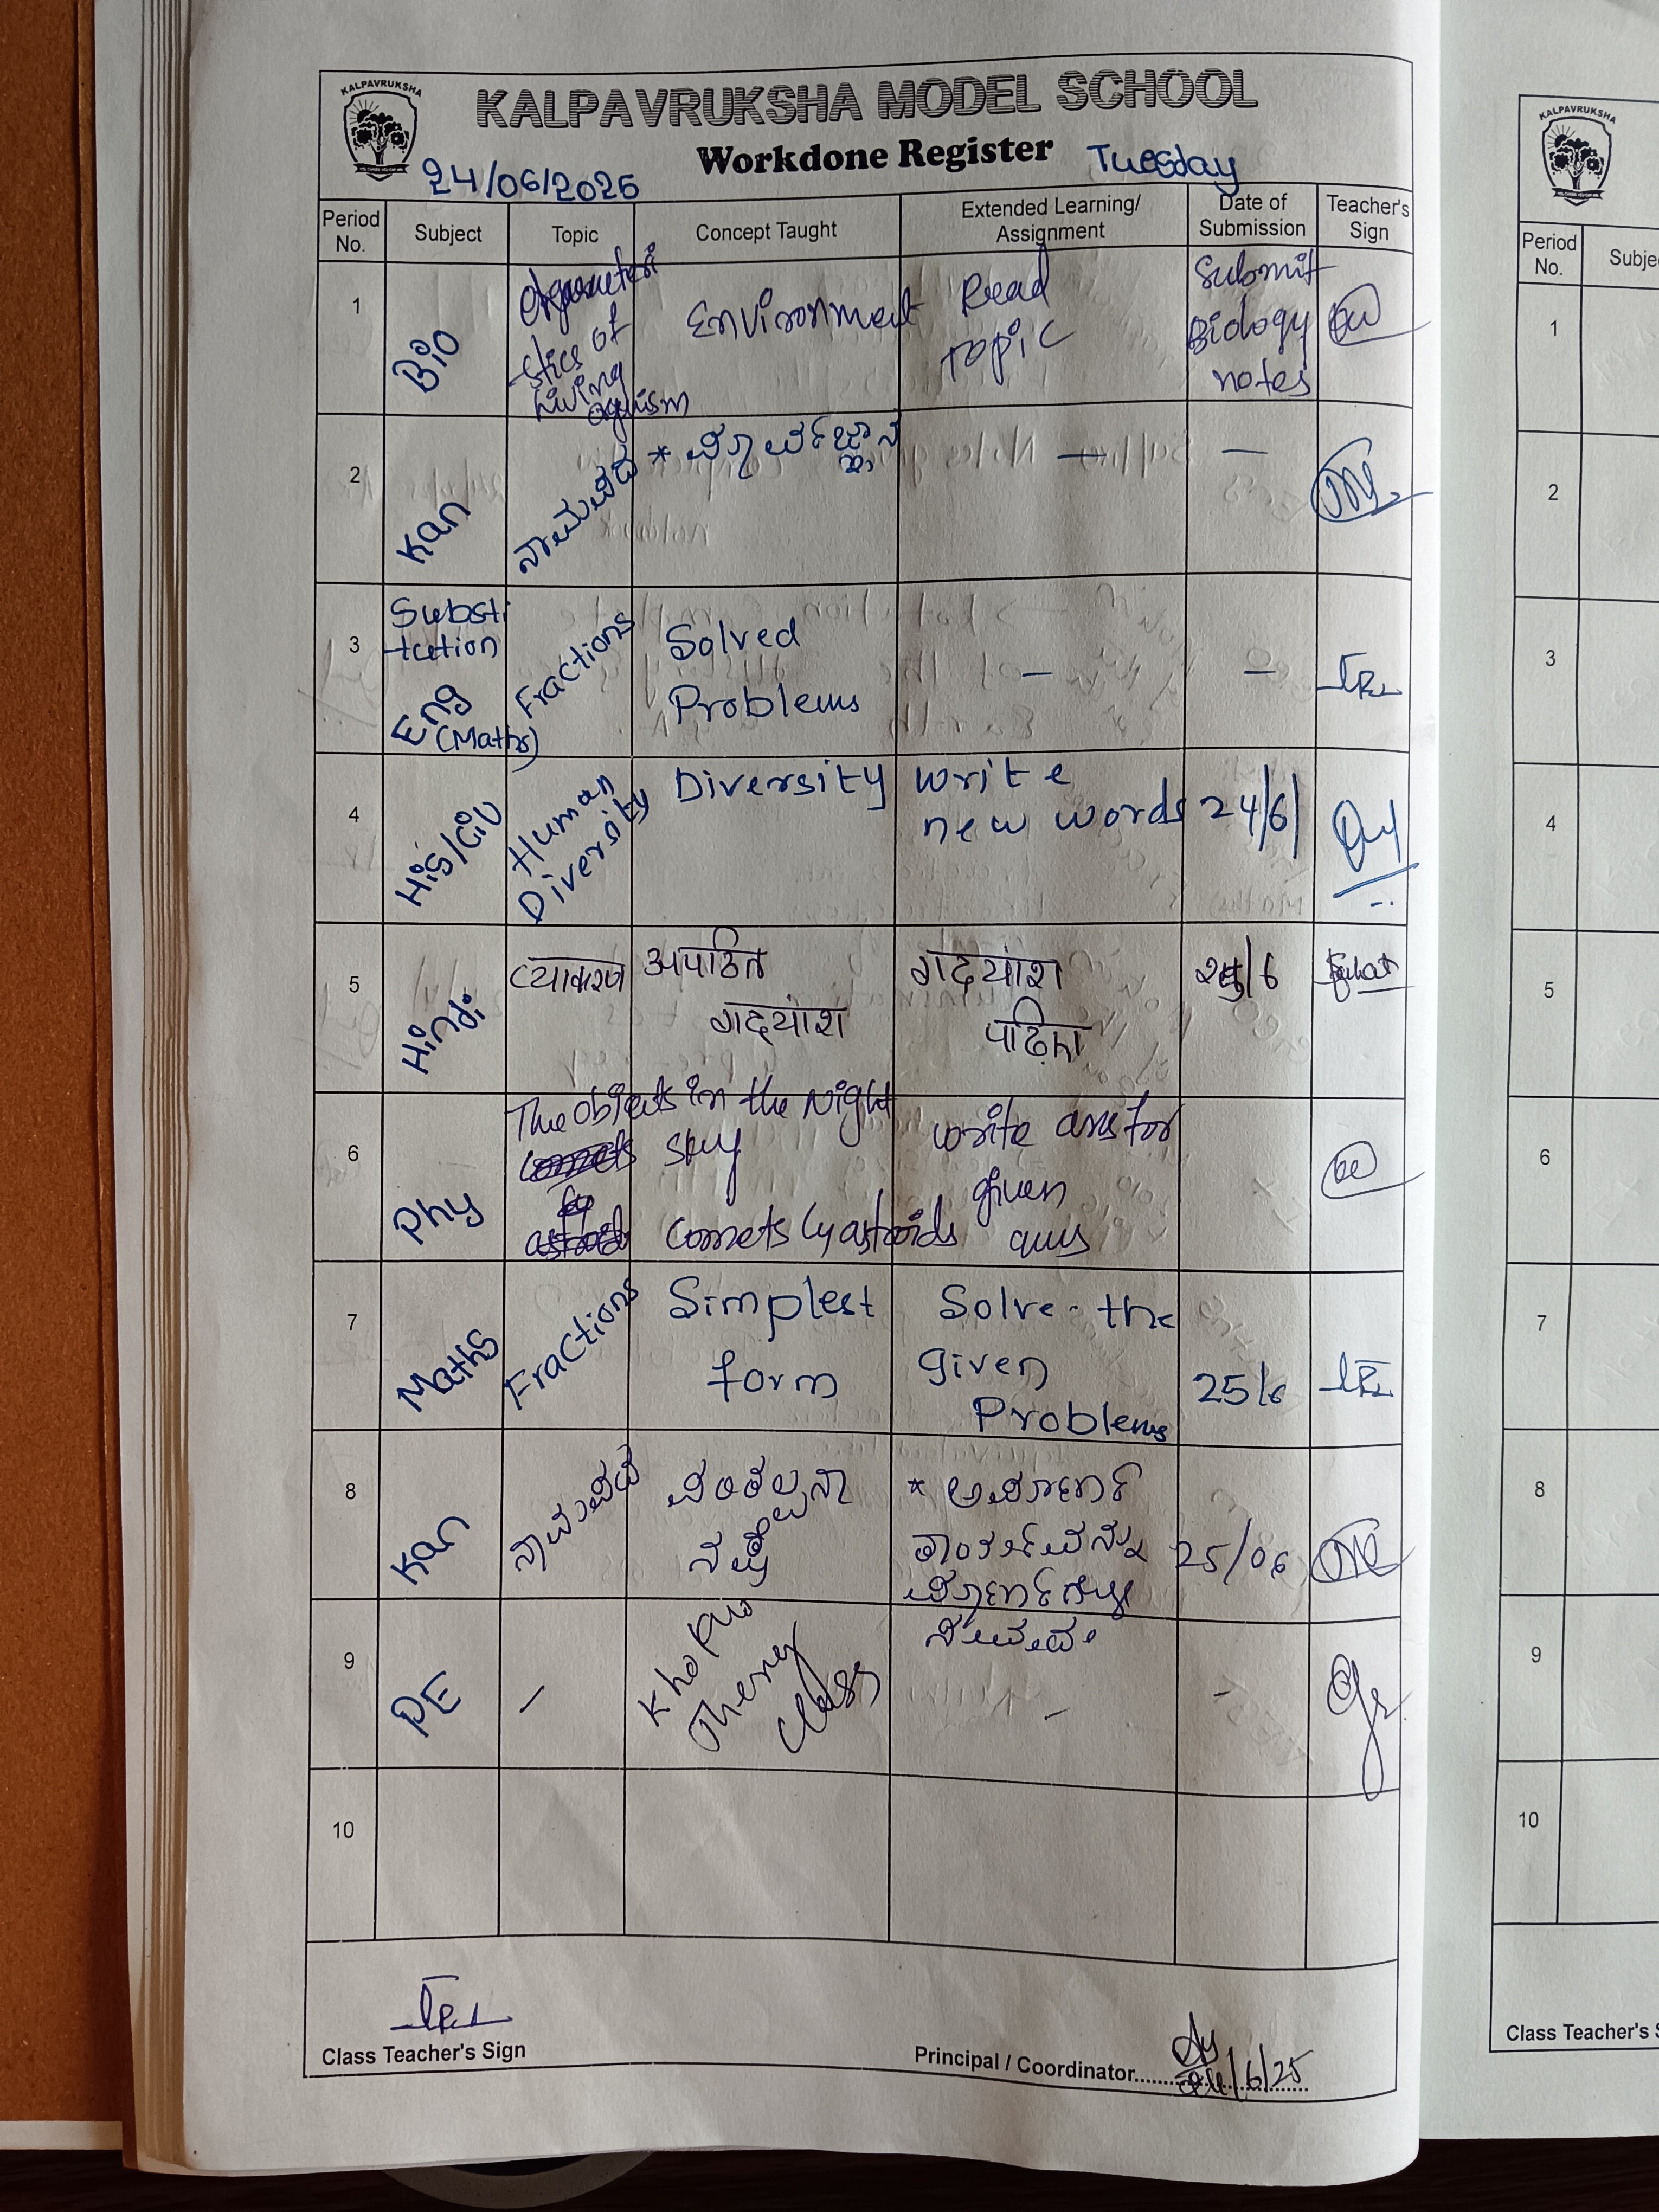 KALPAVRUKSHA
KALPAVRUKSHA MODEL SCHOOL
Workdone Register
24/06/2025
Tuesday
Period No.
Subject
Topic
Concept Taught
Extended Learning/ Assignment
Date of Submission
Teacher's Sign
1
Bio
-stics of
Living
Environment
Read
topic
Submit
Biology
notes
2
Kan
ನಾಮಪದ
—
—
3
Substi
-tution
Eng
(Maths)
Fractions
Solved
Problems
—
—
4
His/Civ
Human
Diversity
Diversity
write
new words
24/6/
5
Hindi
व्याकरण
अपठित
गद्यांश
गद्यांश
6
Phy
The objects in the Night
sky
comets
write ans for
given
ques
7
Maths
Fractions
Simplest
form
Solve the
given
Problems
25/6
8
Kan
ನಾಮಪದ
25/06
9
PE
—
Kho Kho
class
—
-
10
Class Teacher's Sign
Principal / Coordinator
24/6/25
KALPAVRUKSHA
Period No.
Subje
1
2
3
4
5
6
7
8
9
10
Class Teacher's S